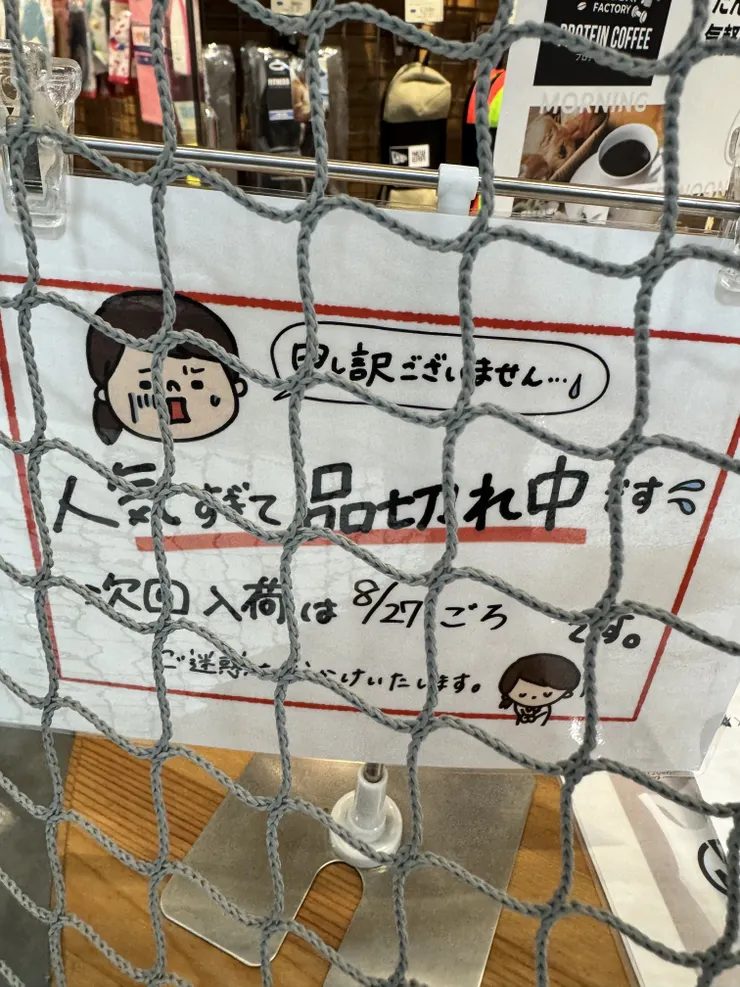 FACTORY
PROTEIN COFFEE
MORNING
申し訳ございません…
人気すぎて品切れ中です
次回入荷は8/27ごろです。
ご迷惑おかけいたします。